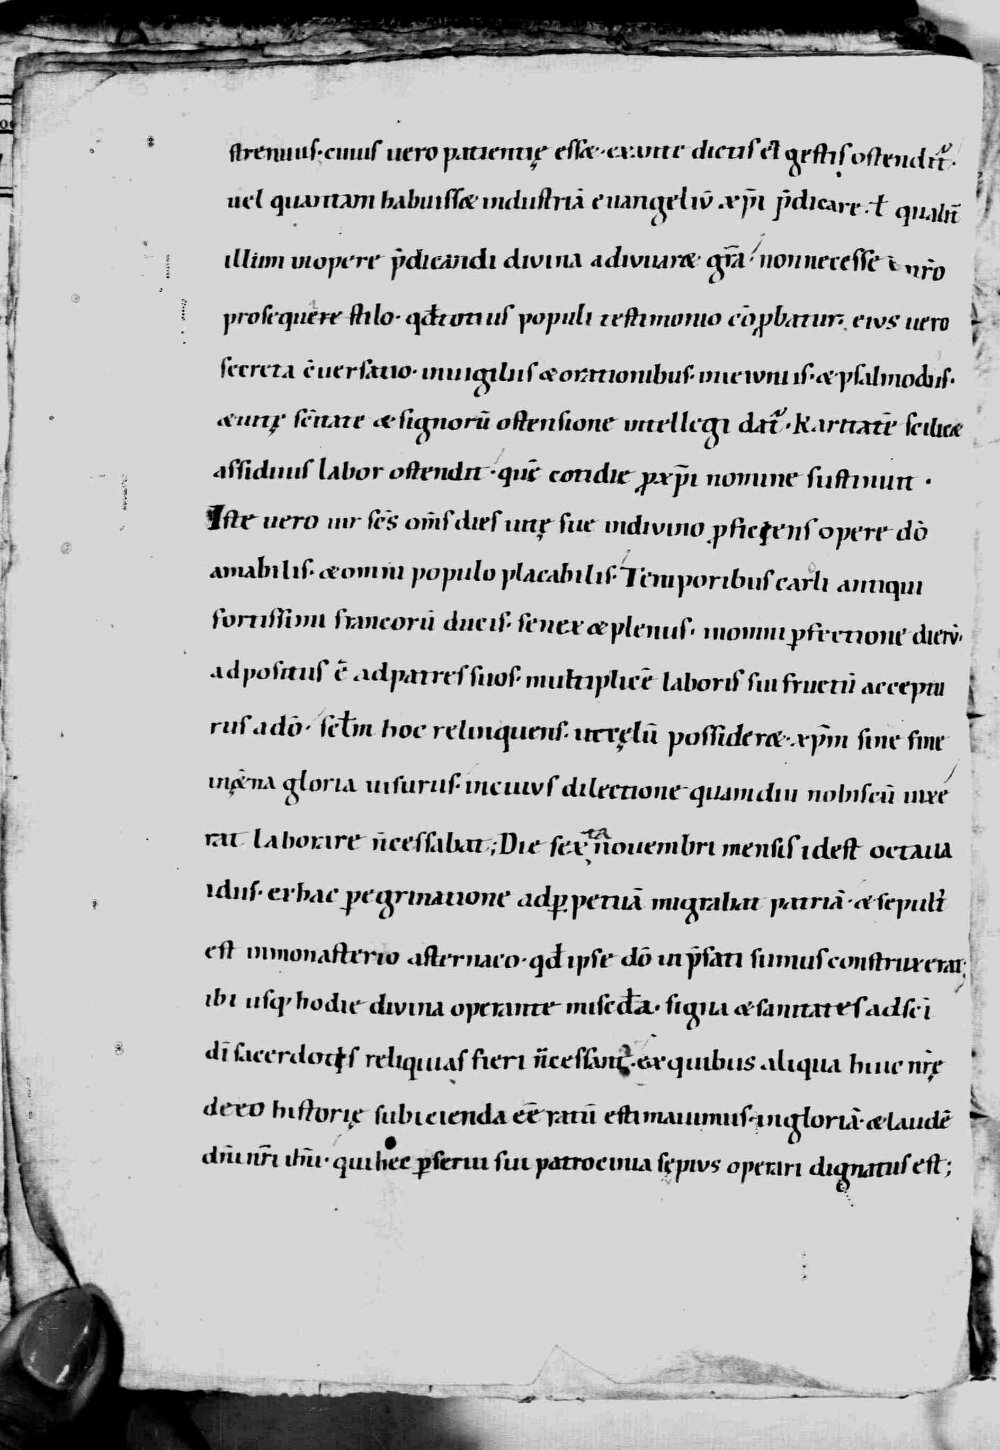 strenuus· cuius uero patientię esset· ex ante dictis et gestis ostendit᷑·
uel quantam habuisset industriā euangeliū xp̄i p̄dicare· ł qualit̄
illum in opere p̄dicandi diuina adiuuaret gr̄a· non necesse ē nr̄o
prosequere stilo· qđ totius populi testimonio cōꝓbatur· eius uero
secreta c̄uersatio· in uigiliis & orationibus· in ieiuniis· & psalmodiis·
& uitę sc̄itate & signorū ostensione intellegi dat᷑· Karitatē scilic&
assiduus labor ostendit· quē cotidie ꝓ xp̄i nomine sustinuit·
Iste uero uir sc̄s om̄s dies uitę sue in diuino ꝓficiens opere dō
amabilis· & omni populo placabilis· Temporibus carli antiqui
fortissimi francorū ducis· senex & plenus· in omni ꝑfectione dierū·
adpositus ē ad patres suos· multiplicē laboris sui fructū acceptu
rus a dō· sc̄łm hoc relinquens· ut cęlū possider&· xp̄m sine fine
in &ęrna gloria uisurus· in cuius dilectione quamdiu nobiscū uixe
rat laborare n̄ cessabat; Die sexta nouembri mensis id est octaua
idus· ex hac peregrinatione ad ꝑpetuā migrabat patriā· & sepult᷑
est in monasterio aefternaco· qđ ipse dō in p̄fati sumus construxerat;
ibi usq· hodie diuina operante misc̄đa· signa & sanitates ad sc̄i
dī sacerdotis reliquias fieri n̄ cessant· ex quibus aliqua huic nr̄ę
de eo historię subicienda eē ratū estimauimus· in gloriā· & laudē
dn̄i nr̄i ihū· qui hec ꝑ serui sui patrocinia sępius operari dignatus est;